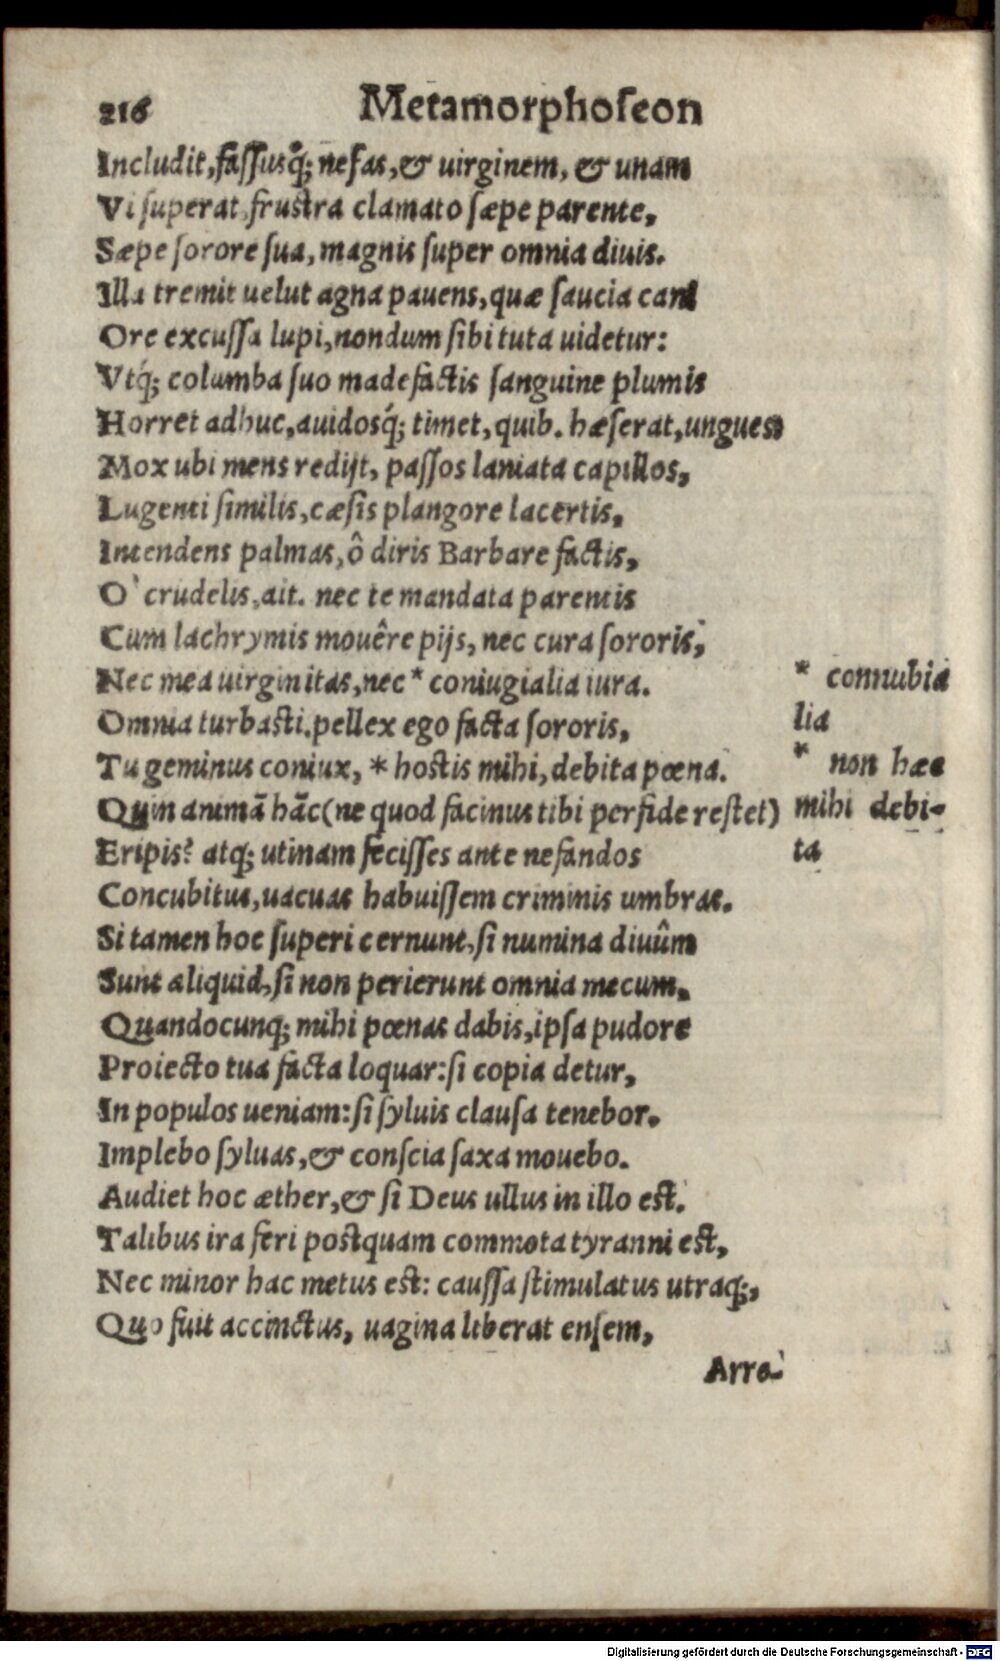 216 Metamorphoſeon
Includit, faſſusq́; nefas, & uirginem, & unam
Vi ſuperat, fruſtra clamato ſæpe parente,
Sæpe ſorore ſua, magnis ſuper omnia diuis.
Illa tremit uelut agna pauens, quæ ſaucia cani
Ore excuſſa lupi, nondum ſibi tuta uidetur:
Vtq́; columba ſuo madefactis ſanguine plumis
Horret adhuc, auidosq́; timet, quib. hæſerat, ungues
Mox ubi mens redijt, paſſos laniata capillos,
Lugenti ſimilis, cæſis plangore lacertis,
Intendens palmas, ô diris Barbare factis,
O' crudelis, ait. nec te mandata parentis
Cum lachrymis mouêre pijs, nec cura ſororis,
Nec mea uirginitas, nec * coniugialia iura.
Omnia turbaſti. pellex ego facta ſororis,
Tu geminus coniux, * hoſtis mihi, debita pœna.
Quin animã hãc (ne quod facinus tibi perfide reſtet)
Eripis? atq; utinam feciſſes ante nefandos
Concubitus, uacuas habuiſſem criminis umbras.
Si tamen hoc ſuperi cernunt, ſi numina diuûm
Sunt aliquid, ſi non perierunt omnia mecum,
Quandocunq; mihi pœnas dabis, ipſa pudore
Proiecto tua facta loquar: ſi copia detur,
In populos ueniam: ſi ſyluis clauſa tenebor.
Implebo ſyluas, & conſcia ſaxa mouebo.
Audiet hoc æther, & ſi Deus ullus in illo eſt.
Talibus ira feri poſtquam commota tyranni eſt,
Nec minor hac metus eſt: cauſſa ſtimulatus utraq;,
Quo fuit accinctus, uagina liberat enſem,
Arre-
* connubia
lia
* non hæc
mihi debi-
ta
Digitalisierung gefördert durch die Deutsche Forschungsgemeinschaft - DFG